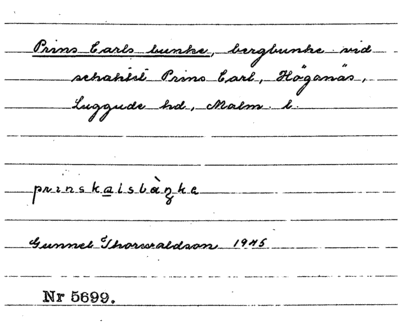 Prins Carls bunke, bergbunke vid
schaktet Prins Carl, Höganäs,
Luggude hd, Malm. l.
Gunnel Thorwaldson 1945
Nr 5699.